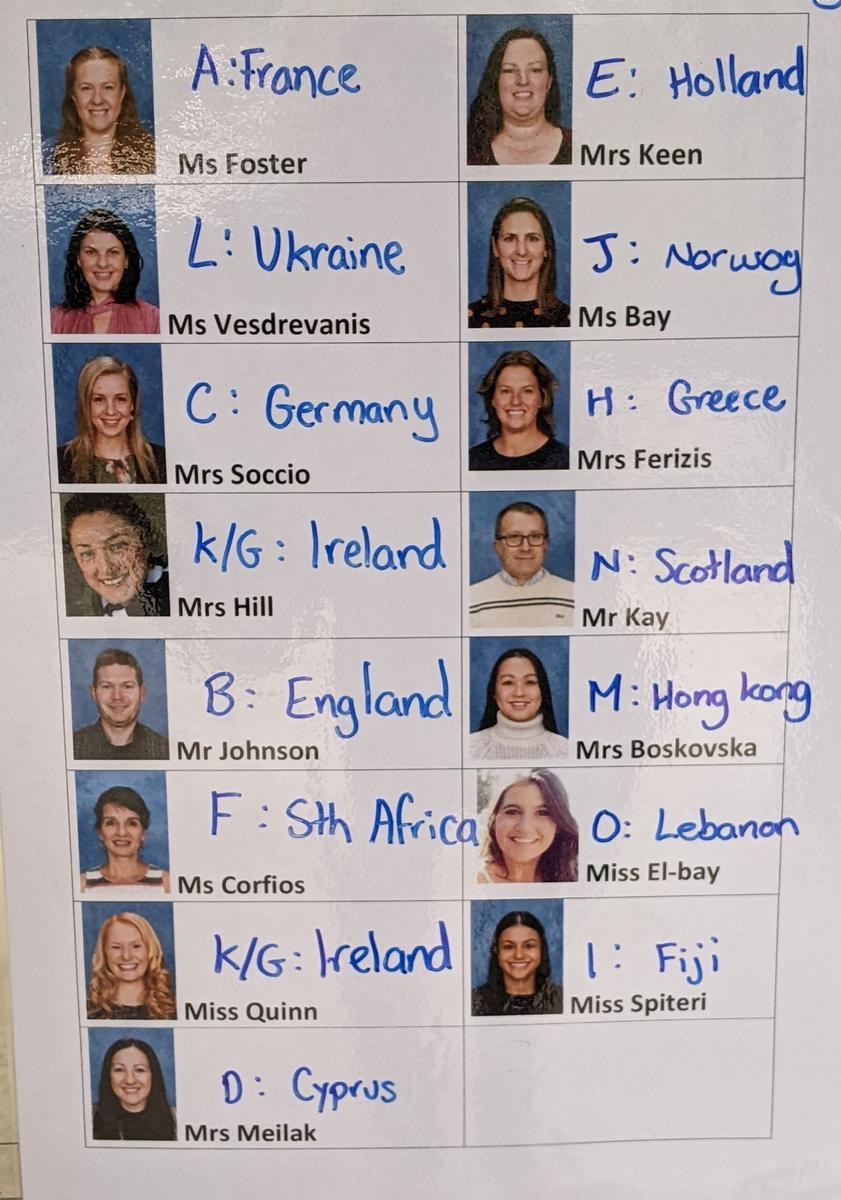 A: France
Ms Foster
E: Holland
Mrs Keen
L: Ukraine
Ms Vesdrevanis
J: Norway
Ms Bay
C: Germany
Mrs Soccio
H: Greece
Mrs Ferizis
K/G: Ireland
Mrs Hill
N: Scotland
Mr Kay
B: England
Mr Johnson
M: Hong kong
Mrs Boskovska
F: Sth Africa
Ms Corfios
O: Lebanon
Miss El-bay
K/G: Ireland
Miss Quinn
I: Fiji
Miss Spiteri
D: Cyprus
Mrs Meilak